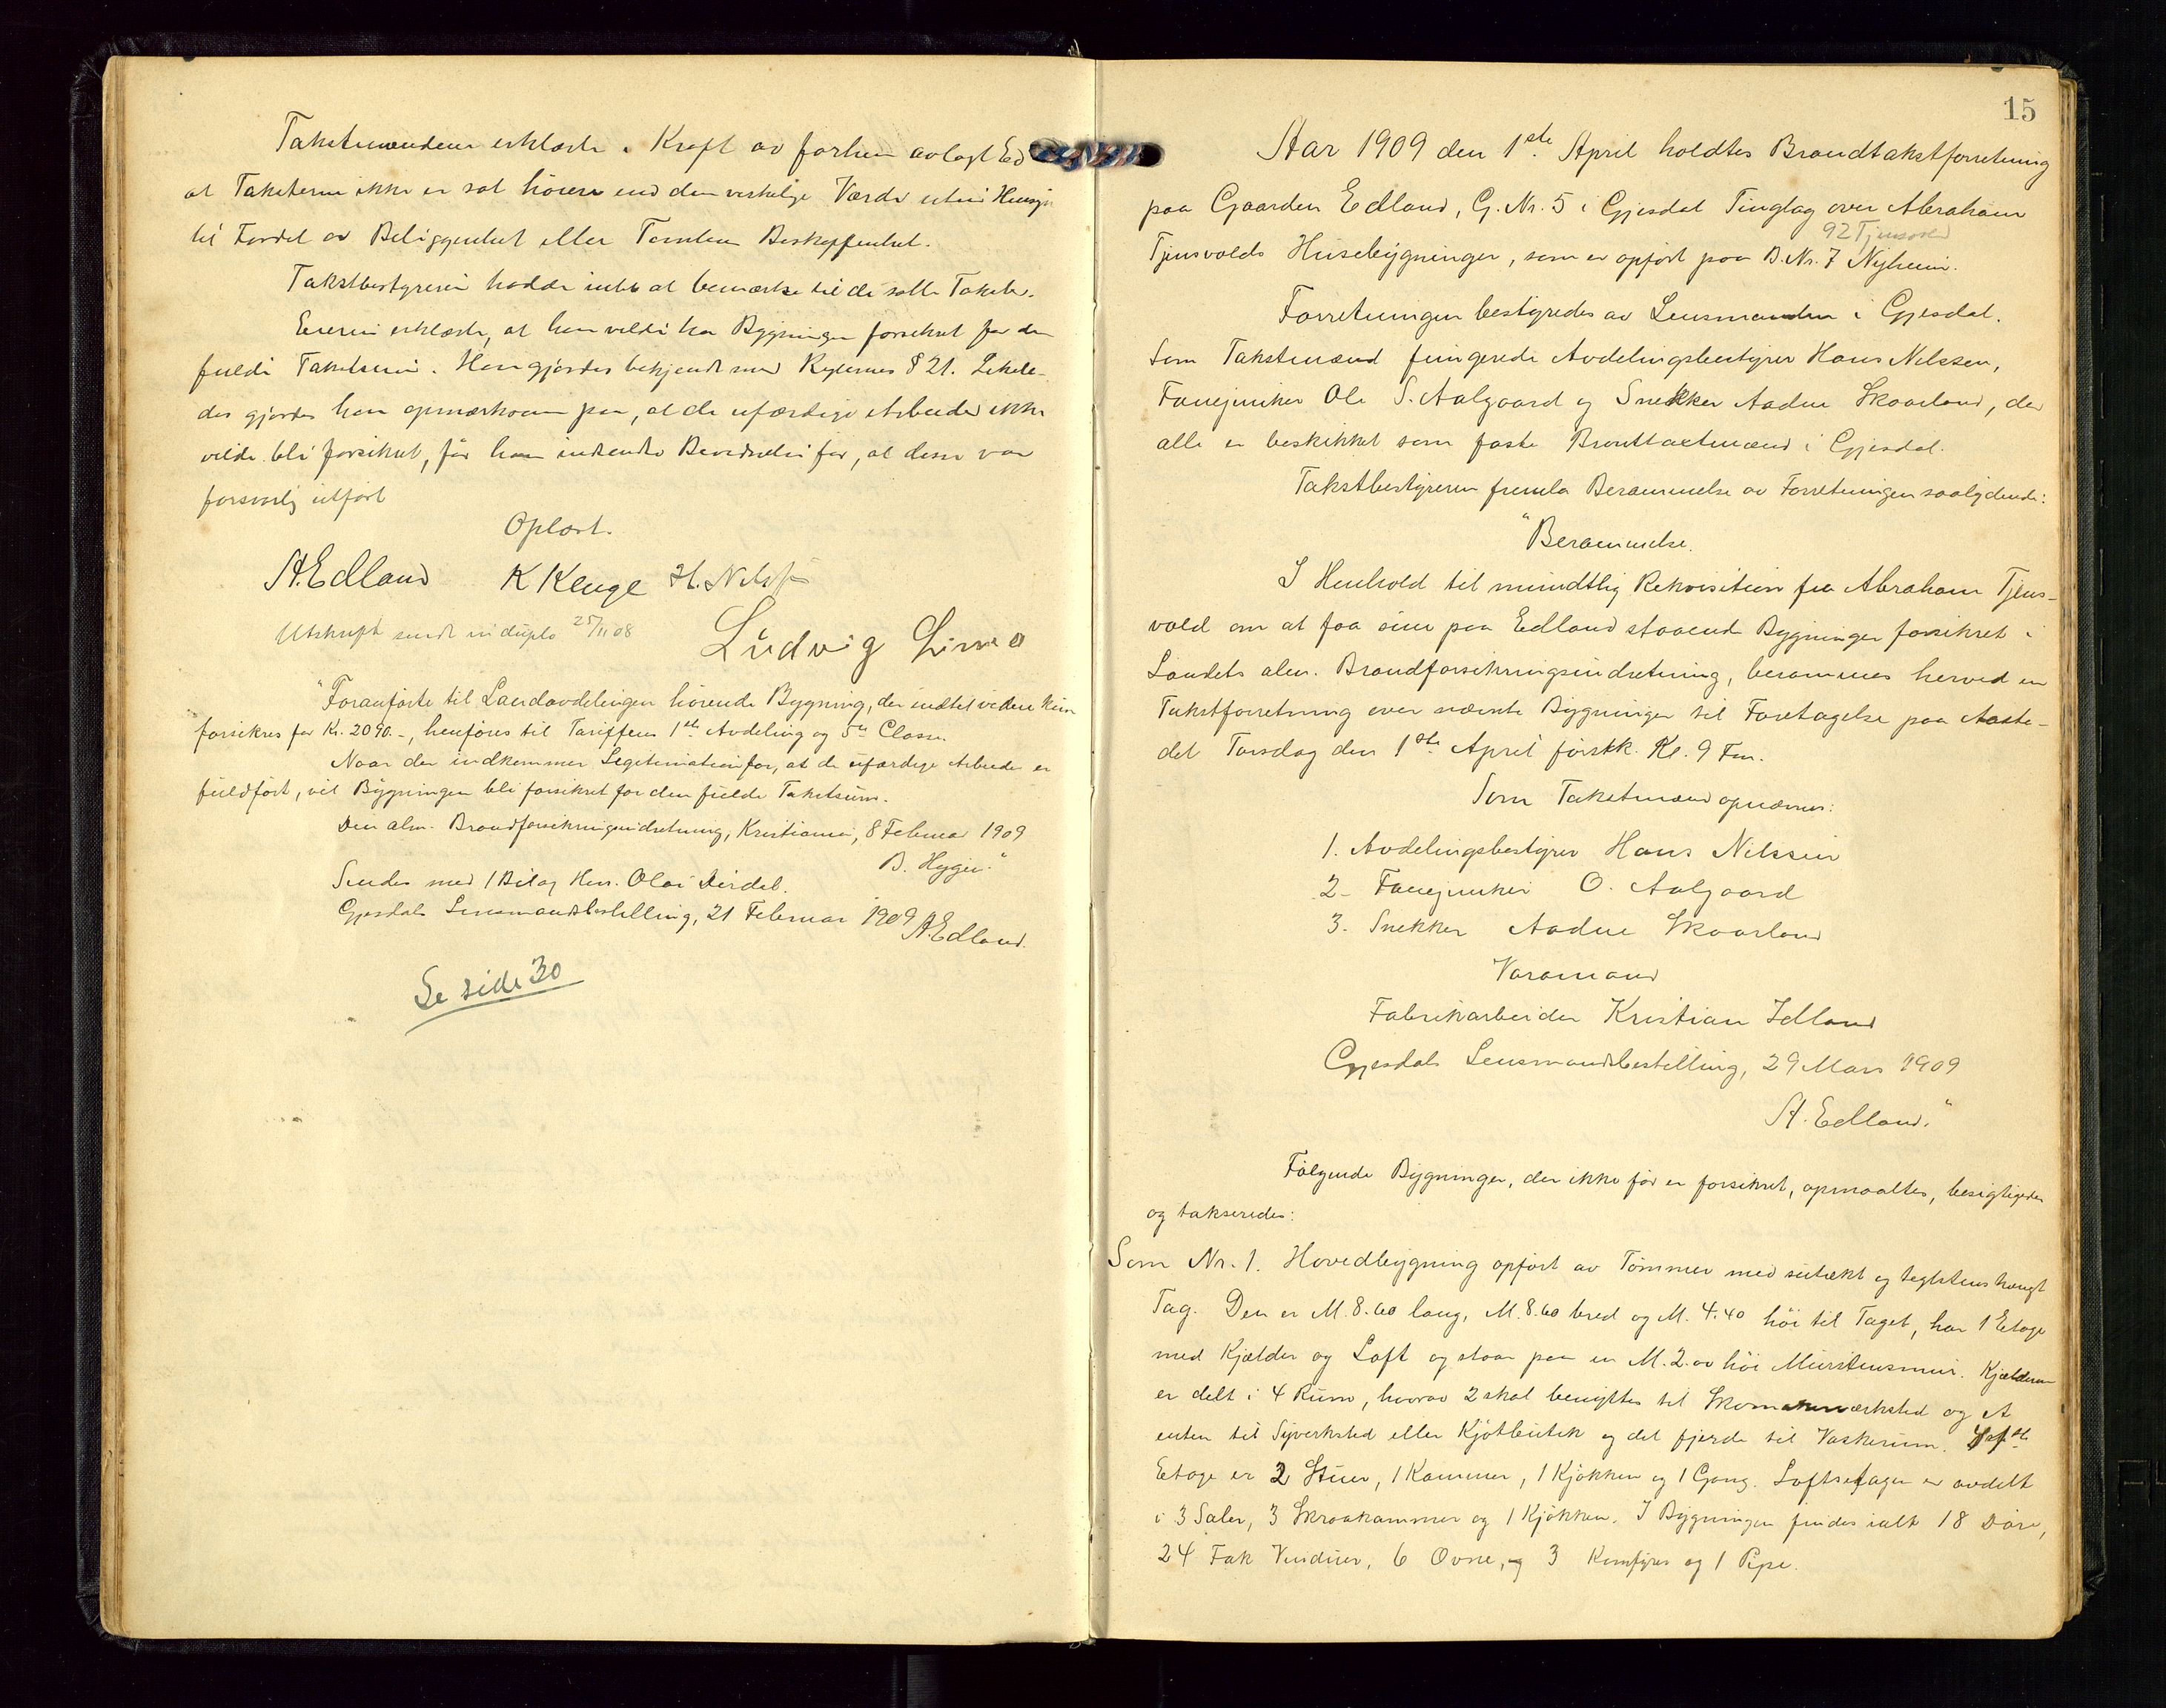 Takstmændene erklærte i Kraft av forhen avlagt Ed
at Taksterne ikke er sat höiere end den virkelige Værdi uten Hensyn
til Fordel av Beliggenhet eller Tomtens Beskaffenhet.
Takstbestyreren hadde intet at bemærke til de satte Takster.
Eieren erklærte, at han vilde ha Bygningen forsikret for den
fulde Takstsum. Han gjordes bekjendt med Reglernes § 21. Likele-
des gjordes han opmærksom paa, at de ufærdige Arbeider ikke
vilde bli forsikret, för han indsendte Bevidnelse for, at disse var
forsvarlig utfört
Oplæst.
A. Edland K Kluge H. Nilssen
Utskrift sendt in duplo 25/11 08
Ludvig Lima
"Foranförte til Landavdelingen hörende Bygning, der indtil videre kun
forsikres for Kr. 2090.-, henföres til Tariffens 1ste Avdeling og 5te Classe.
Naar der indkommer Legitimation for, at de ufærdige Arbeider er
fuldfört, vil Bygningen bli forsikret for den fulde Takstsum.
Den alm. Brandforsikringsindretning, Kristiania, 8 Februar 1909
B. Hygen."
Sendes med 1 Bilag Hrr. Olai Dirdal.
Gjesdals Lensmandsbestilling, 21 Februar 1909
A. Edland.
Se side 30
15
Aar 1909 den 1ste April holdtes Brandtakstforretning
paa Gaarden Edland, G. Nr. 5 i Gjesdal Tinglag over Abraham
92 Tjensvold
Tjensvolds Husebygninger, som er opfört paa B. Nr. 7 Nyheim.
Forretningen bestyredes av Lensmanden i Gjesdal.
Som Takstmænd fungerede Avdelingsbestyrer Hans Nilssen,
Fanejunker Ole S. Aalgaard og Snekker Aadne Skaarland, der
alle er beskikket som faste Brandtakstmænd i Gjesdal.
Takstbestyreren fremla Berammelse av Forretningen saalydende:
"Berammelse.
I Henhold til mundtlig Rekvisition fra Abraham Tjens-
vold om at faa sine paa Edland staaende Bygninger forsikret i
Landets alm. Brandforsikringsindretning, berammes herved en
Takstforretning over nævnte Bygninger til Foretagelse paa Aaste-
det Torsdag den 1ste April förstk. Kl. 9 Fm.
Som Takstmænd opnævnes:
1. Avdelingsbestyrer Hans Nilssen
2- Fanejunker O. Aalgaard
3. Snekker Aadne Skaarland
Varamand
Fabrikarbeider Kristian Idland
Gjesdals Lensmandsbestilling, 29 Mars 1909
A. Edland."
Fölgende Bygninger, der ikke för er forsikret, opmaaltes, besigtigedes
og takseredes:
Som Nr. 1. Hovedbygning opfört av Tömmer med sutækt og teglstenshængt
Tag. Den er M. 8.60 lang, M. 8.60 bred og M. 4.40 höi til Taget, har 1 Etage
med Kjælder og Loft og staar paa en M. 2.00 höi Murstensmur. Kjælderen
er delt i 4 Rum, hvorav 2 skal benyttes til Skomakerværksted og et
enten til Syverksted eller Kjötbutik og det fjerde til Vaskerum. I 1ste
Etage er 2 Stuer, 1 Kammer, 1 Kjökken og 1 Gang. Loftsetagen er avdelt
i 3 Saler, 3 Skraakammer og 1 Kjökken. I Bygningen findes ialt 18 Döre,
24 Fak Vinduer, 6 Ovne, og 3 Komfyrer og 1 Pipe.